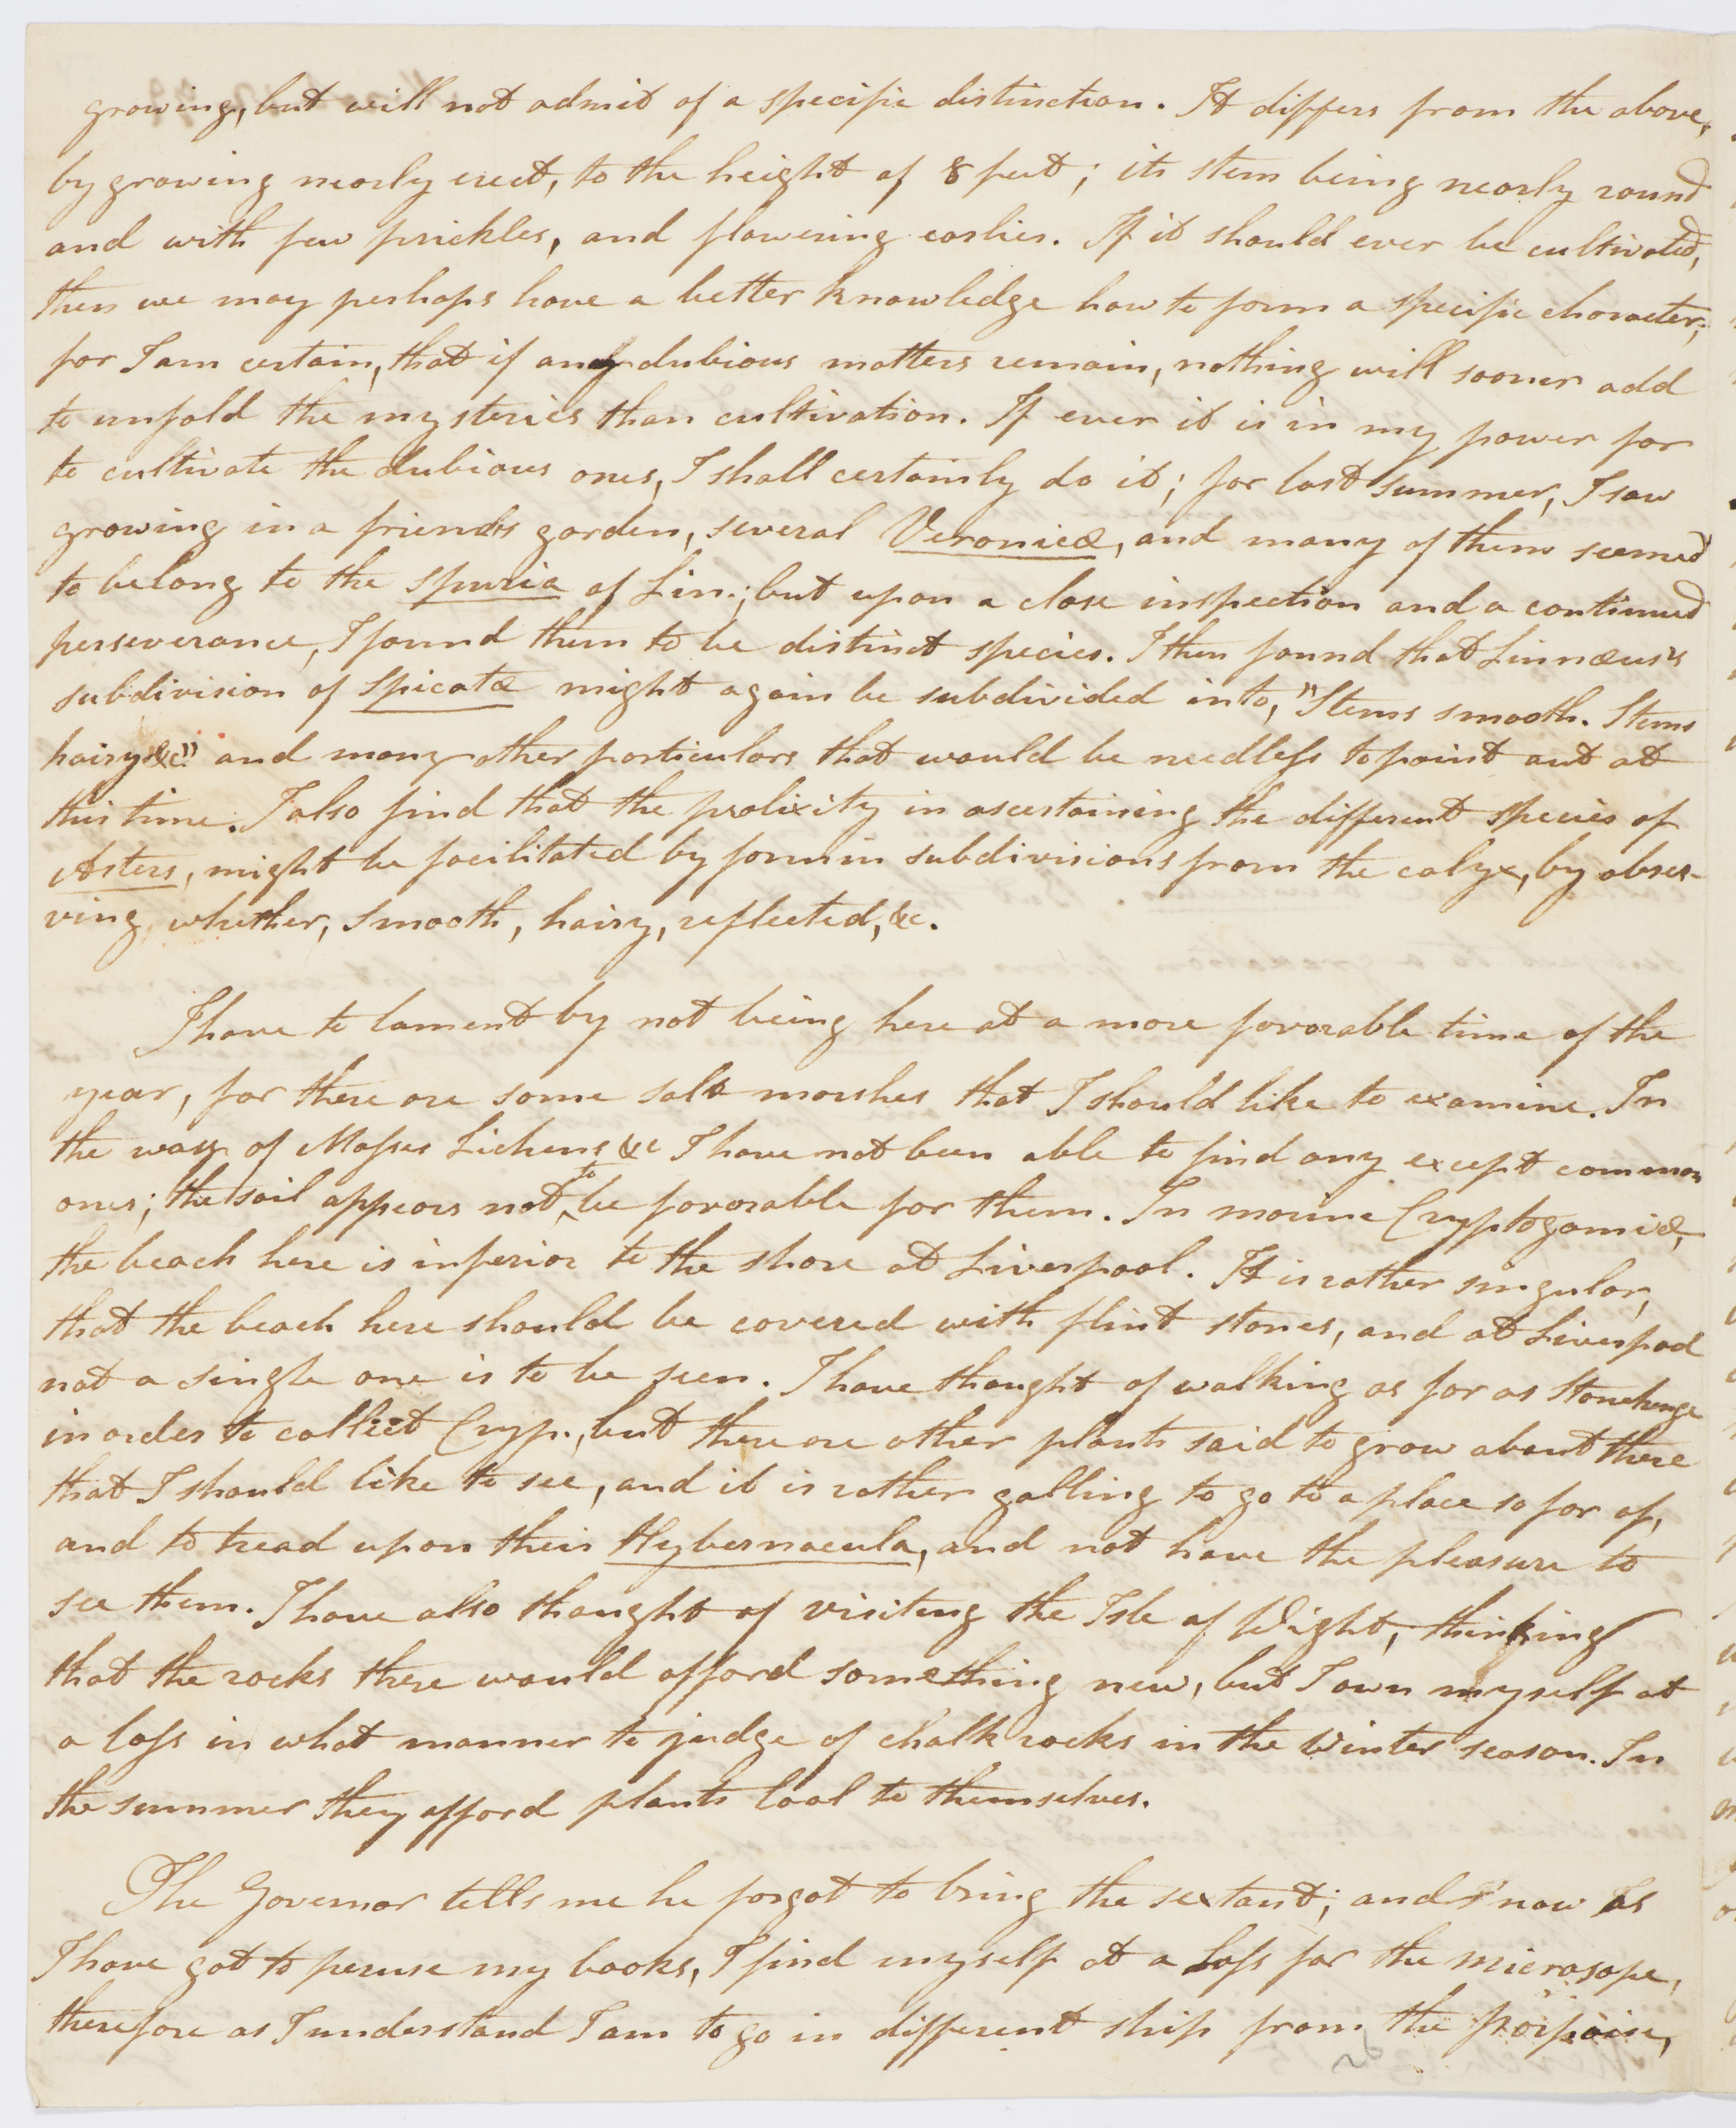 growing, but will not admit of a specific distinction. It differs from the above,
by growing nearly erect, to the height of 8 feet; its stem being nearly round
and with few prickles, and flowering earlier. If it should ever be cultivated,
then we may perhaps have a better knowledge how to form a specific character;
for I am certain, that if any dubious matters remain, nothing will sooner add
to unfold the mysteries than cultivation. If ever it is in my power for
to cultivate the dubious ones, I shall certainly do it; for last summer, I saw
growing in a friends garden, several Veronicæ, and many of them seemed
to belong to the spuria of Lin.; but upon a close inspection and a continued
perseverance, I found them to be distinct species. I then found that Linnæus's
subdivision of Spicatæ might again be subdivided into, "Stems smooth. Stems
hairy &c" and many other particulars that would be needless to point out at
this time. I also find that the prolixity in ascertaining the different species of
Asters, might be facilitated by formin subdivisions from the calyx, by obser-
ving, whether, smooth, hairy, reflected, &c.
I have to lament by not being here at a more favorable time of the
year, for there are some salt marshes that I should like to examine. In
the way of Mosses Lichens &c I have not been able to find any except common
ones; the soil appears not to be favorable for them. In marine Cryptogamiæ,
the beach here is inferior to the shore at Liverpool. It is rather singular,
that the beach here should be covered with flint stones, and at Liverpool
not a single one is to be seen. I have thought of walking as far as Stonehenge
in order to collect Cryp., but there are other plants said to grow about there
that I should like to see, and it is rather galling to go to a place so far of,
and to tread upon their Hybernacula, and not have the pleasure to
see them. I have also thought of visiting the Isle of Wight, thinking
that the rocks there would afford something new, but I own myself at
a loss in what manner to judge of chalk rocks in the Winter season. In
the summer they afford plants loal to themselves.
The Governor tells me he forgot to bring the sextant; and now as
I have got to peruse my books, I find myself at a Loss for the microsope,
therefore as I understand I am to go in different ship from the porpoise,